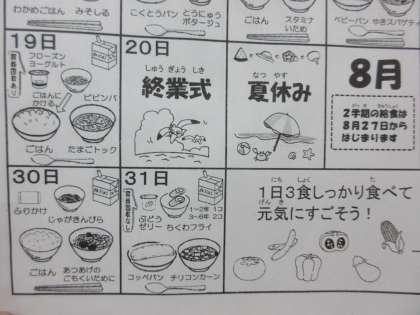 わかめごはん みそしる
こくとうパン とうにゅう
ポタージュ
ごはん スタミナ
いため
ベビーパン やきスパゲティ
19日
フローズン
ヨーグルト
ごはんに
かける
ビビンバ
ごはん たまごトック
20日
しゅう ぎょう しき
終業式
なつ やす
夏休み
8月
2学期の給食は
8月27日から
はじまります
30日
ふりかけ
じゃがきんぴら
ごはん
あつあげの
ごもくいために
31日
ぶどう
ゼリー
1~2年 1コ
3~6年 2コ
ちくわフライ
コッペパン チリコンカーン
1日3食しっかり食べて
元気にすごそう!